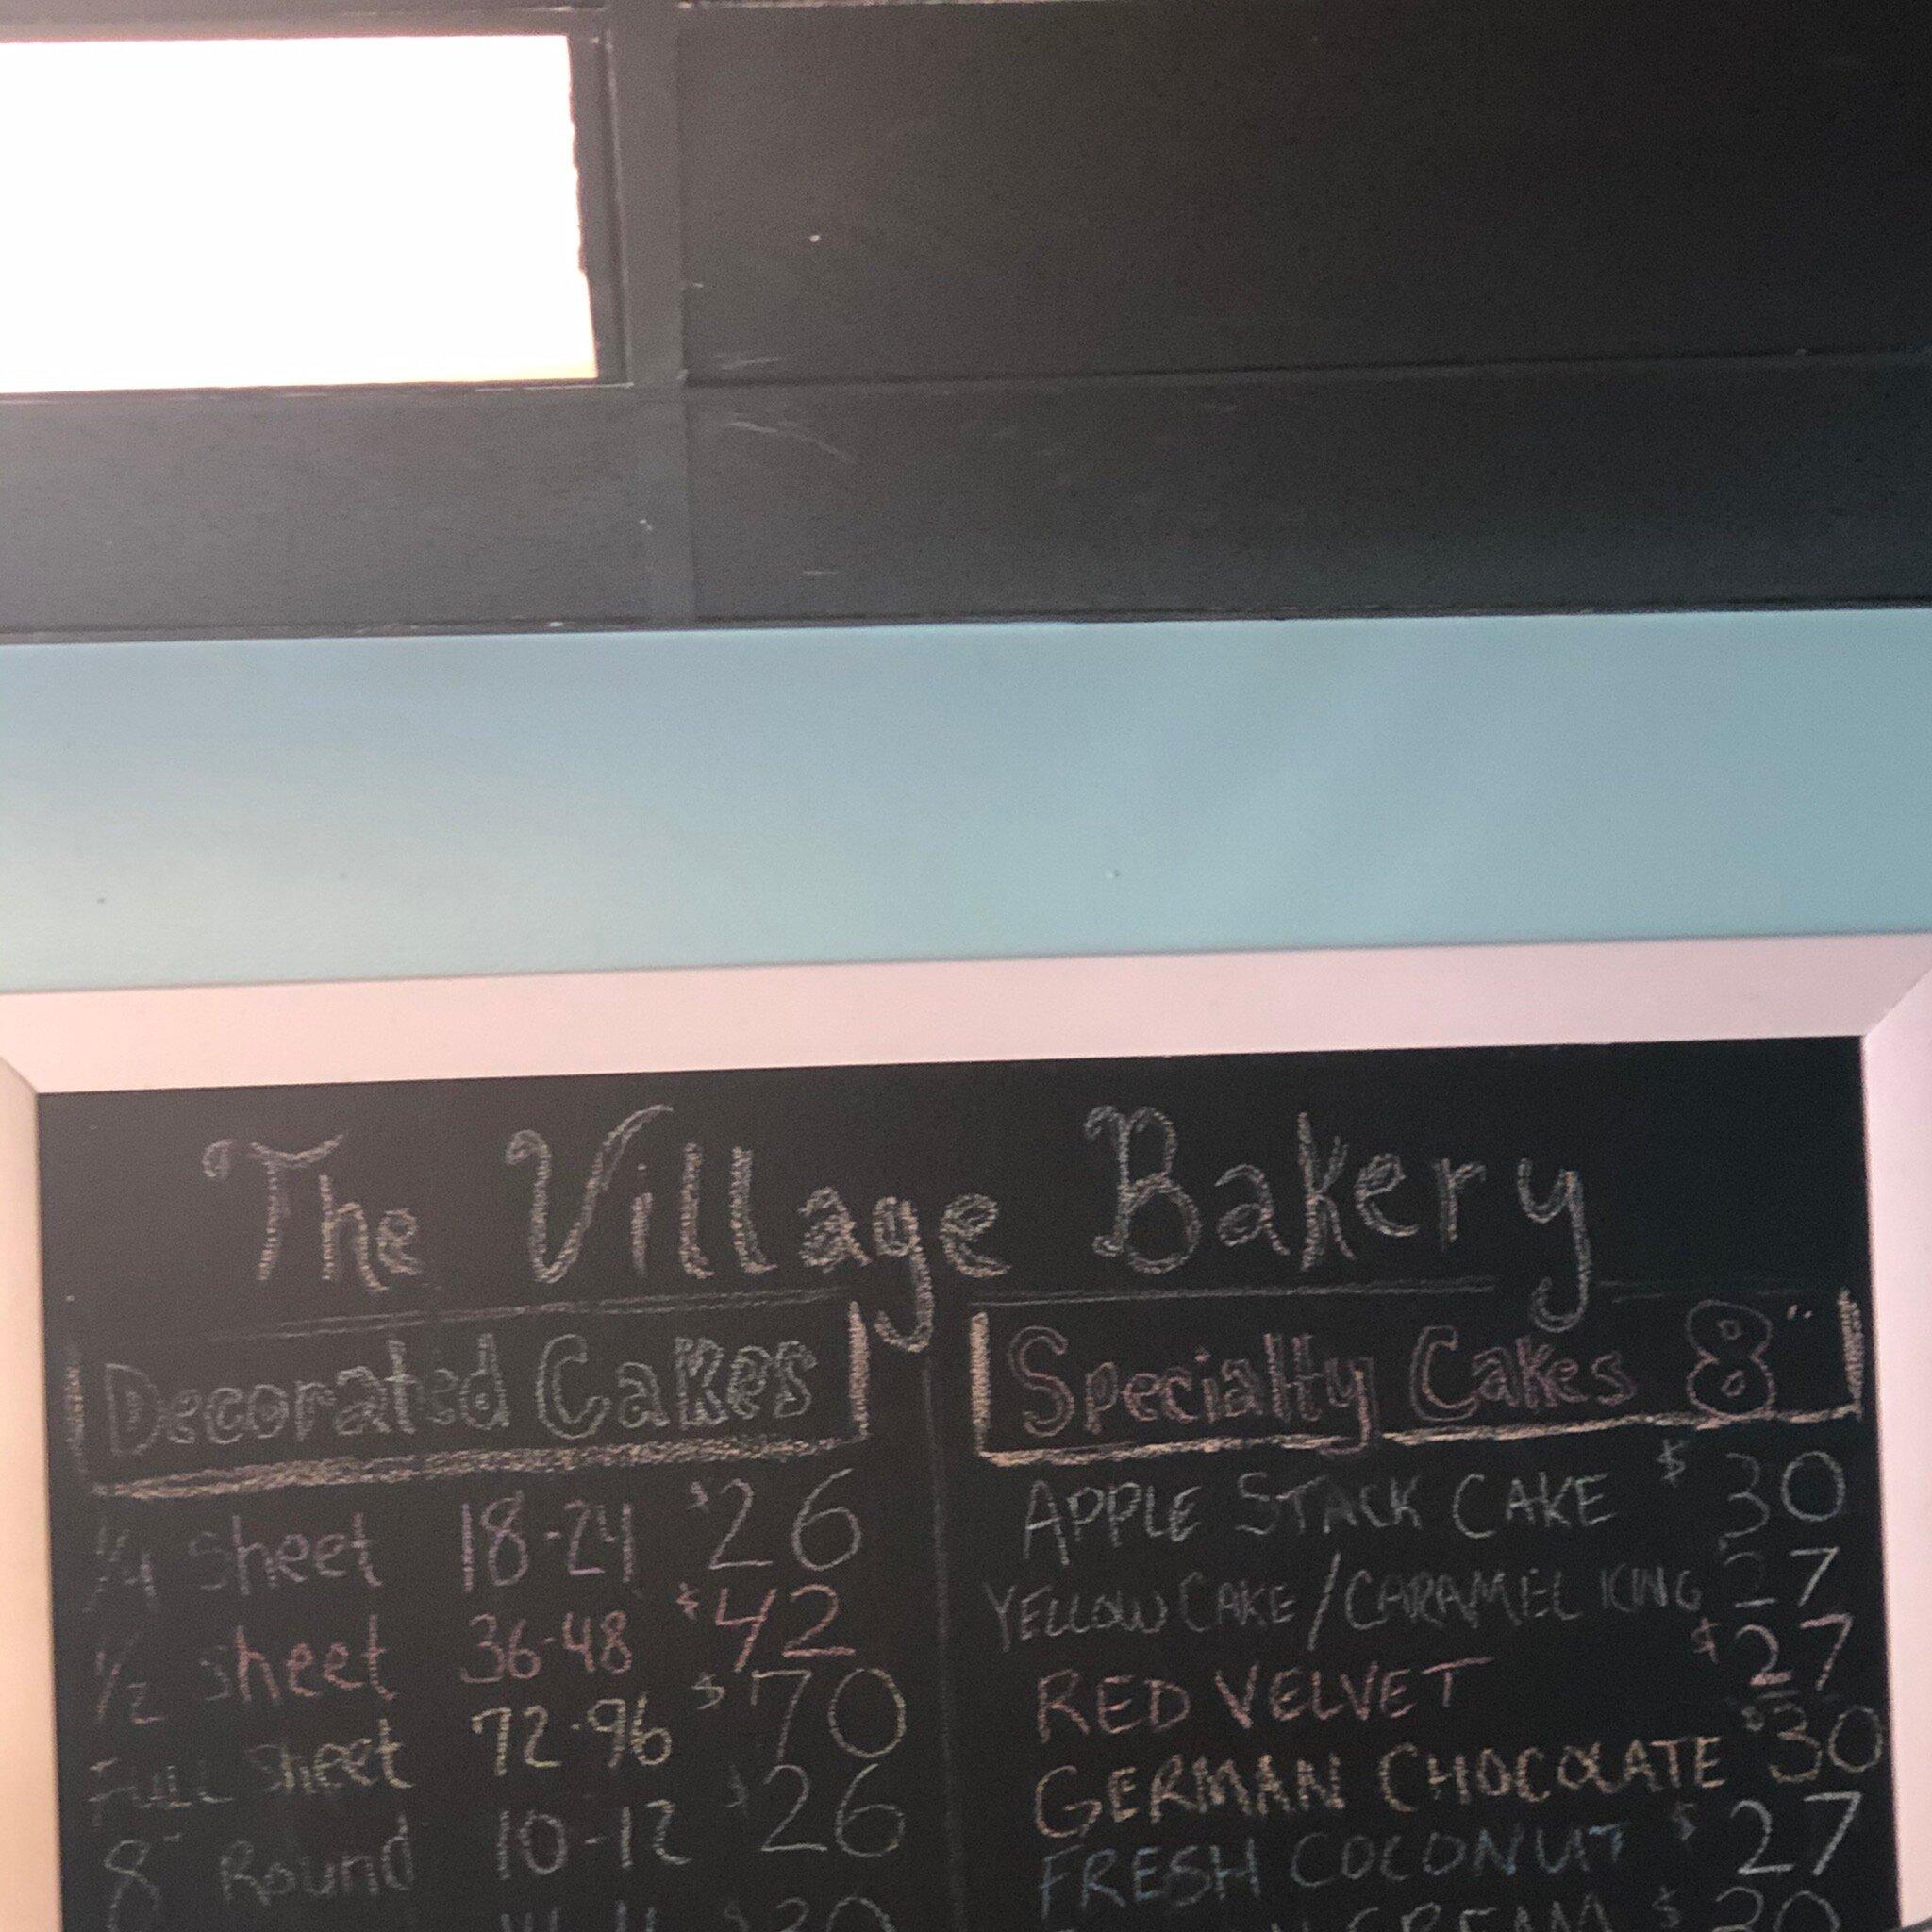 The Village Bakery
Decorated Cakes
1/4 sheet 18-24 $26
1/2 sheet 36-48 $42
Full sheet 72-96 $70
8" Round 10-12 $26
Specialty Cakes 8"
APPLE STACK CAKE $30
YELLOW CAKE/CARAMEL ICING 27
RED VELVET $27
GERMAN CHOCOLATE $30
FRESH COCONUT $27
CREAM $